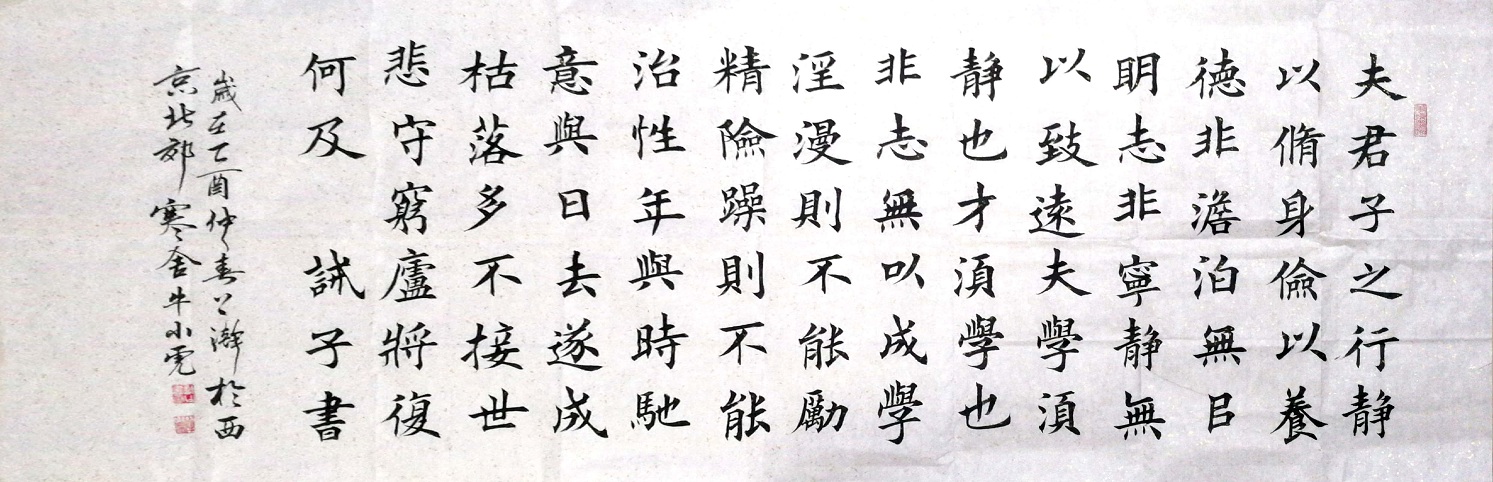 夫君子之行静
以脩身儉以養
德非澹泊無㠯
明志非寧静無
以致遠夫學須
静也才須學也
非志無以成學
淫漫則不能勵
精險躁則不能
治性年與時馳
意與日去遂成
枯落多不接世
悲守窮廬將復
何及 誡子書
歲在乙酉仲春上澣於西
京北郊寒舍牛小虎